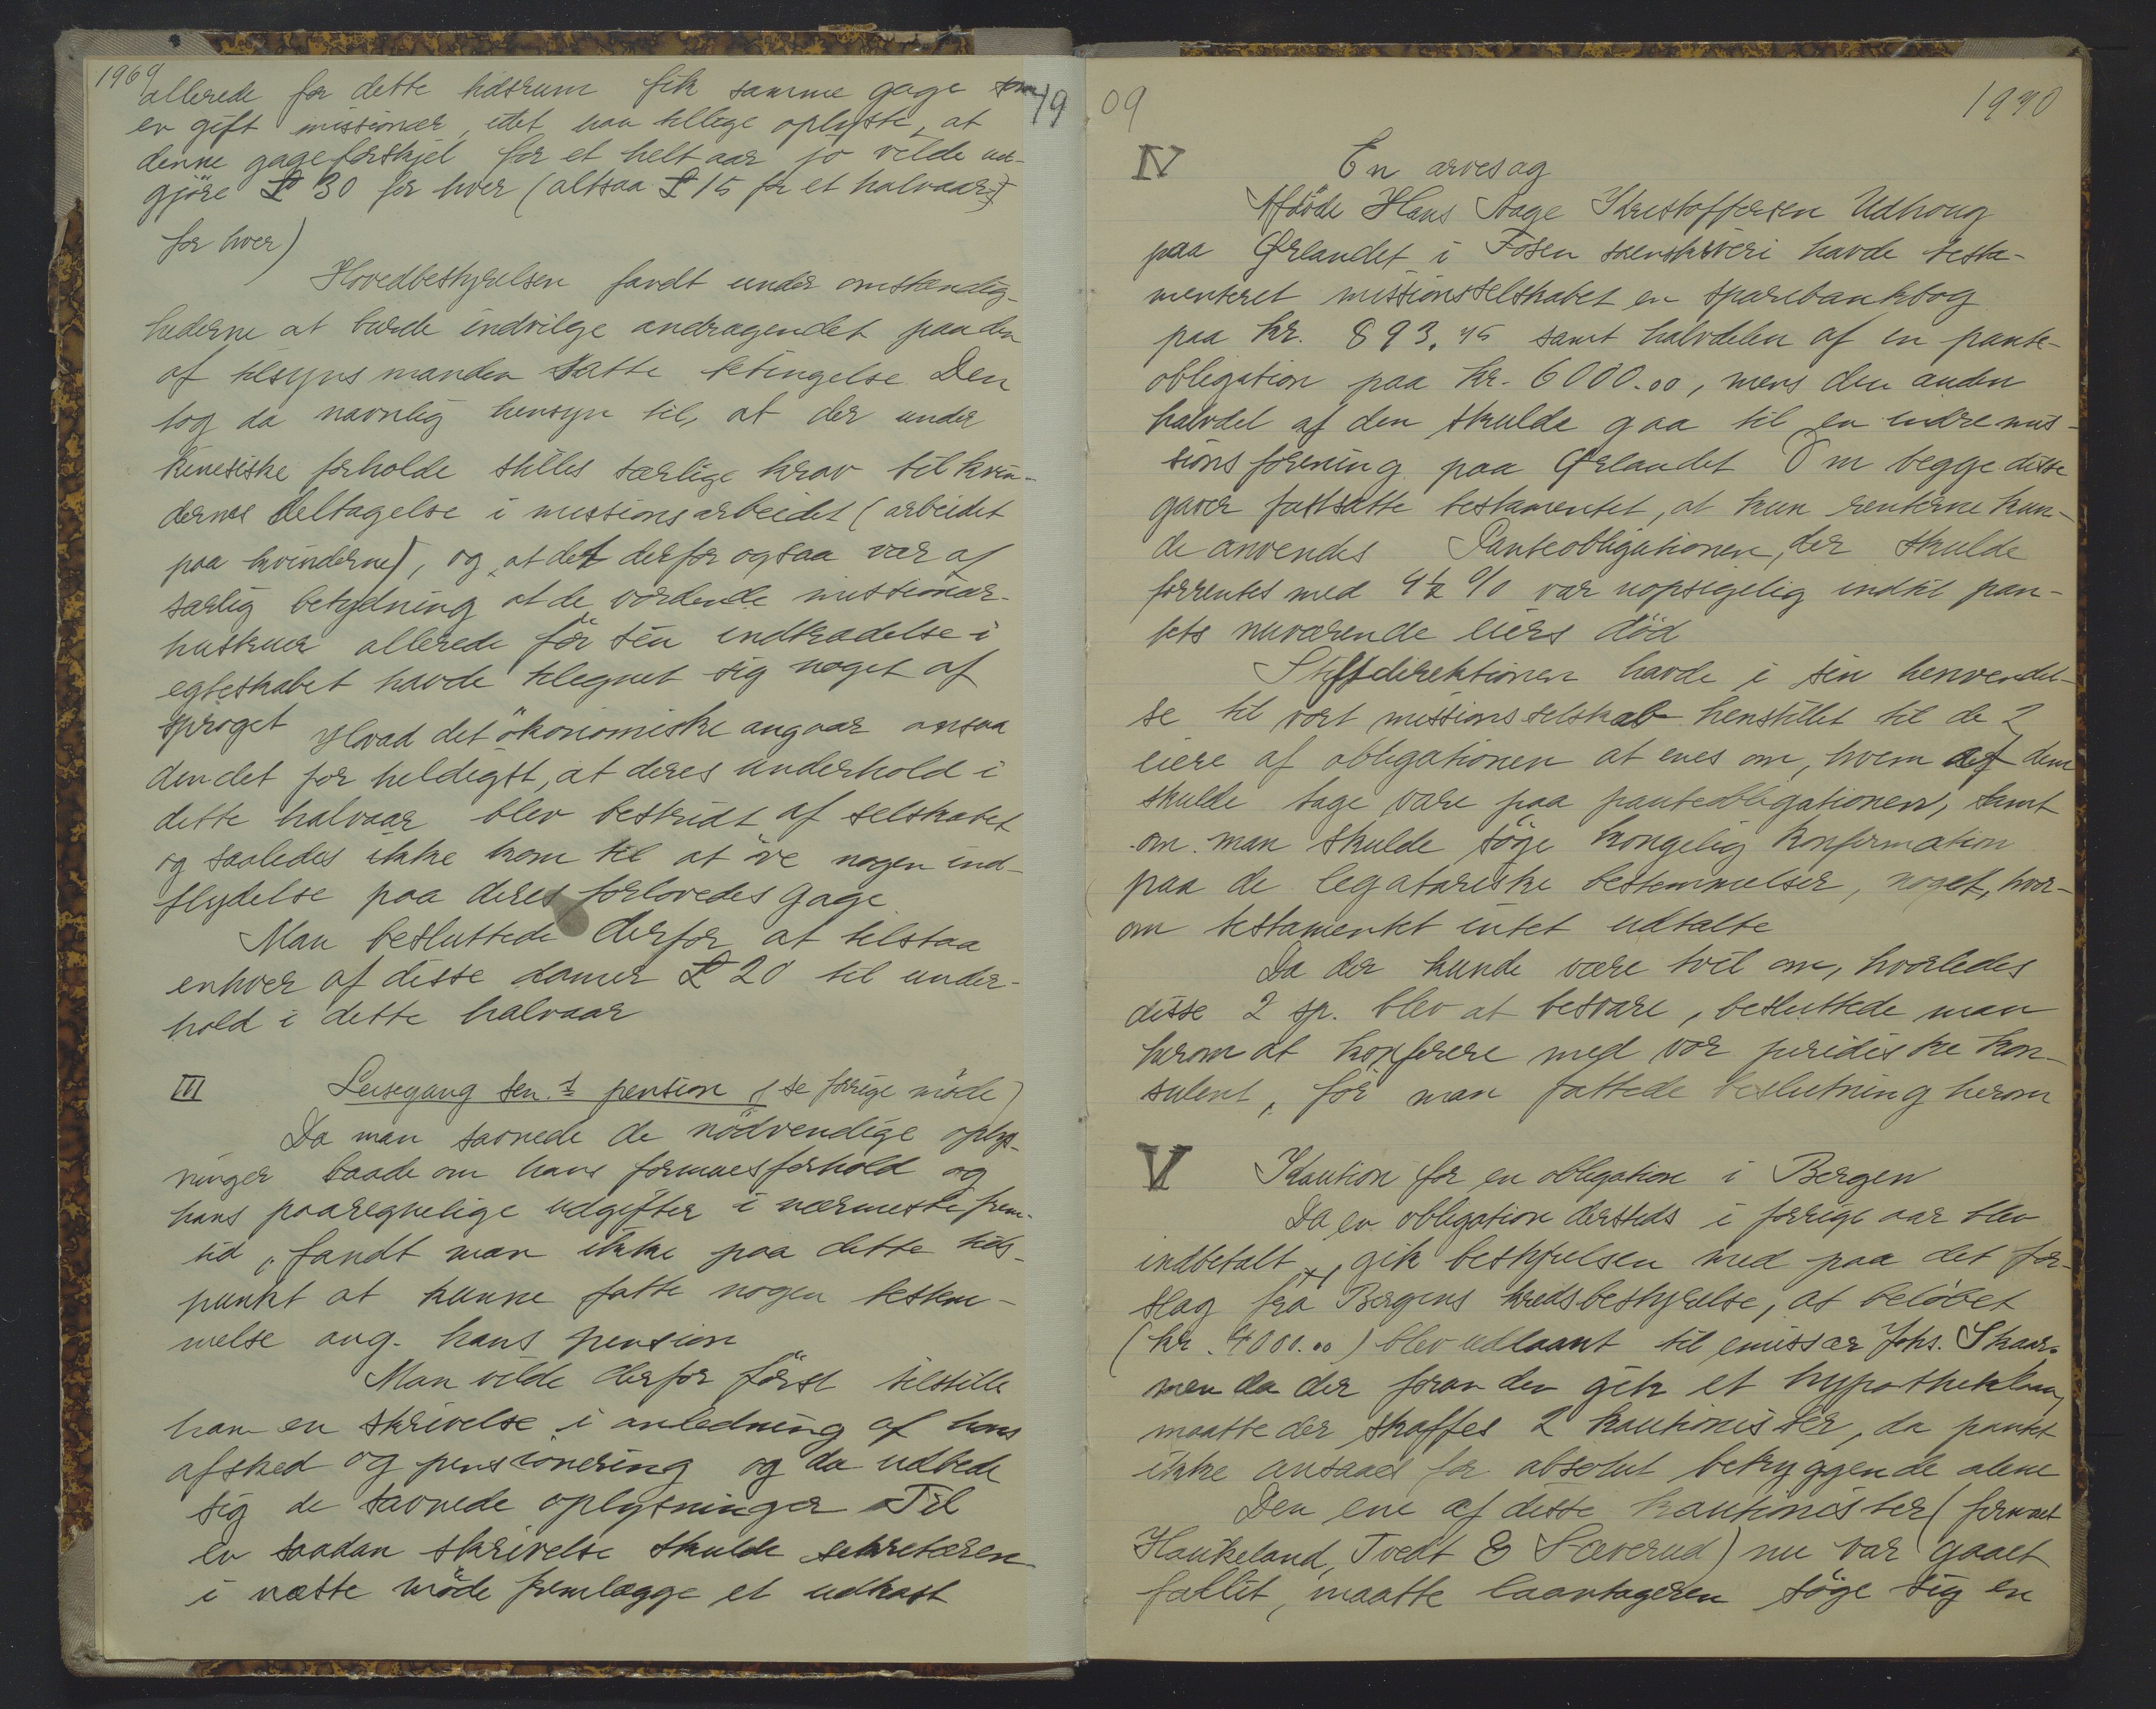 1969
allerede for dette tidsrum fik samme gage som
en gift missionær, idet han tillige oplyste, at
denne gageforskjel for et helt aar jo vilde ud-
gjöre £ 30 for hver (altsaa £ 15 for et halvaar
for hver)
Hovedbestyrelsen fandt under omstændig-
hederne at burde indvilge andragendet paa den
af tilsynsmanden satte betingelse Den
tog da navnlig hensyn til, at der under
kinesiske forholde stilles særlige krav til kvin-
dernes deltagelse i missionsarbeidet (arbeidet
paa kvinderne), og at det derfor ogsaa var af
særlig betydning at de vordende missionær-
hustruer allerede för sin indtrædelse i
egteskabet havde tilegnet sig noget af
sproget Hvad det ökonomiske angaar ansaa
den det for heldigst, at deres underhold i
dette halvaar blev bestridt af selskabet
og saaledes ikke kom til at öve nogen ind-
flydelse paa deres forlovedes gage
Man besluttede derfor at tilstaa
enhver af disse damer £ 20 til under-
hold i dette halvaar
III Leisegang sen.s pension (se forrige möde)
Da man savnede de nödvendige oplys-
ninger baade om hans formuesforhold og
hans paaregnelige udgifter i nærmeste frem-
tid, fandt man ikke paa dette tids-
punkt at kunne fatte nogen bestem-
melse ang. hans pension
Man vilde derfor först tilstille
ham en skrivelse i anledning af hans
afsked og pensionering og da udbede
sig de savnede oplysninger Til
en saadan skrivelse skulde sekretæren
i næste möde fremlægge et udkast
19 09
1970
IV En arvesag
Afdöde Hans Aage Kristoffersen Udhoug
paa Ørlandet i Fosen sorenskriveri havde testa-
menteret missionsselskabet en sparebankbog
paa kr. 893,45 samt halvdelen af en pante-
obligation paa kr. 6000.00, mens den anden
halvdel af den skulde gaa til en indremis-
sionsforening paa Ørlandet Om begge disse
gaver fastsatte testamentet, at kun renterne kun-
de anvendes Panteobligationen, der skulde
forrentes med 4½ % var uopsigelig indtil pan-
tets nuværende eiers död
Stiftsdirektionen havde i sin henvendel-
se til vort missionsselskab henstillet til de 2
eiere af obligationen at enes om, hvem af dem
skulde tage vare paa panteobligationen, samt
om man skulde söge kongelig konfirmation
paa de legatariske bestemmelser, noget, hvor-
om testamentet intet udtalte
Da der kunde være tvil om, hvorledes
disse 2 sp. blev at besvare, besluttede man
herom at konferere med vor juridiske kon-
sulent, för man fattede beslutning herom
V Kaution for en obligation i Bergen
Da en obligation dersteds i forrige aar blev
indbetalt, gik bestyrelsen med paa det for-
slag fra Bergens kredsbestyrelse, at belöbet
(kr. 4000.00) blev udlaant til emissær Johs. Skaar.
men da der foran den gik et hypotheklaan,
maatte der skaffes 2 kautionister, da pantet
ikke ansaaes for absolut betryggende alene
Den ene af disse kautionister (firmaet
Haukeland, Tvedt & Sæverud) nu var gaaet
fallit, maatte laantageren söge sig en